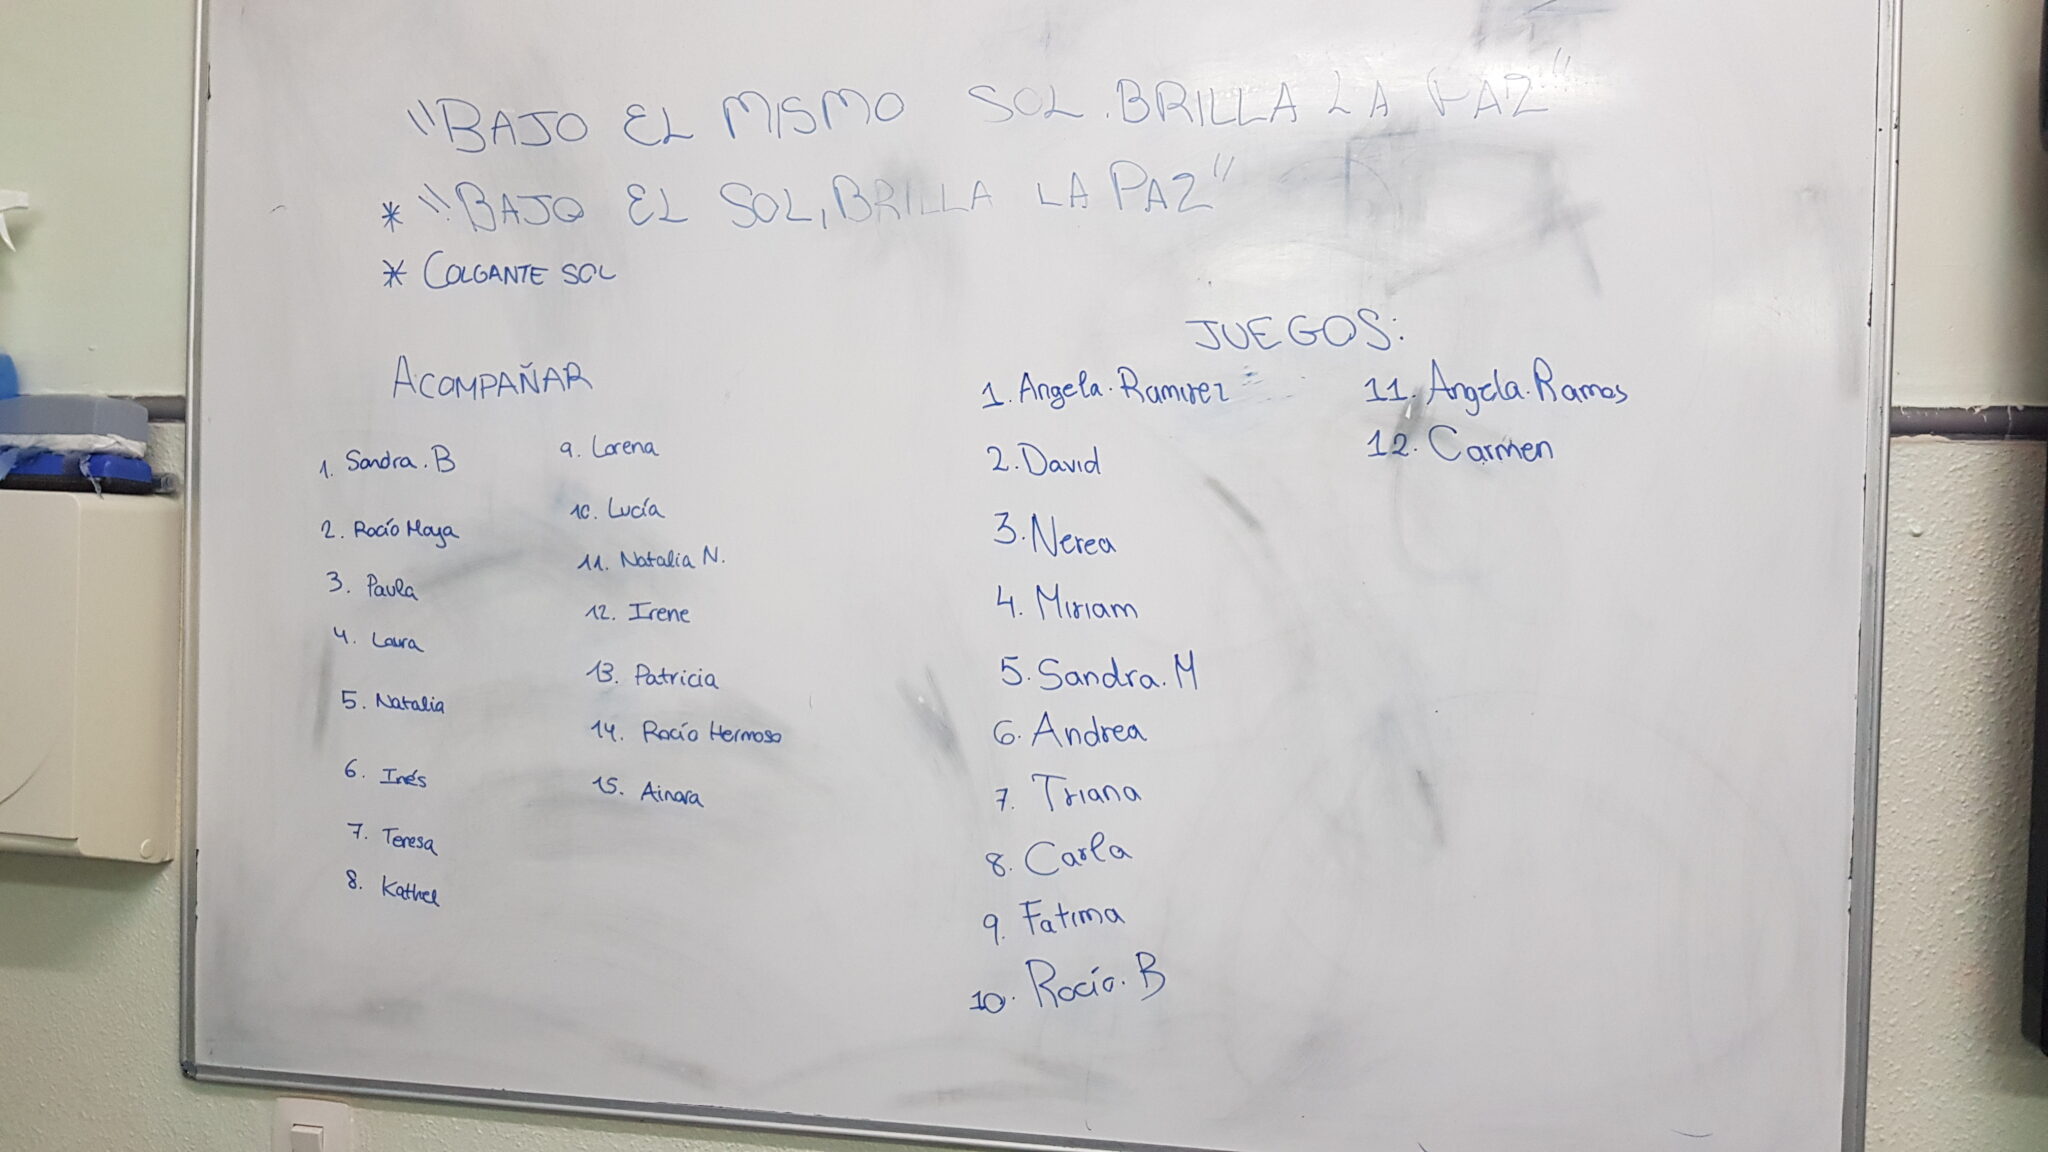 "BAJO EL MISMO SOL. BRILLA LA PAZ"
* "BAJO EL SOL, BRILLA LA PAZ"
* COLGANTE SOL
ACOMPAÑAR
1. Sandra.B
2. Rocío Maya
3. Paula
4. Laura
5. Natalia
6. Inés
7. Teresa
8. Kathel
9. Lorena
10. Lucía
11. Natalia N.
12. Irene
13. Patricia
14. Rocío Hermoso
15. Ainara
JUEGOS:
1. Angela.Ramirez
2. David
3. Nerea
4. Miriam
5. Sandra.M
6. Andrea
7. Triana
8. Carla
9. Fatima
10. Rocío.B
11. Angela.Ramos
12. Carmen